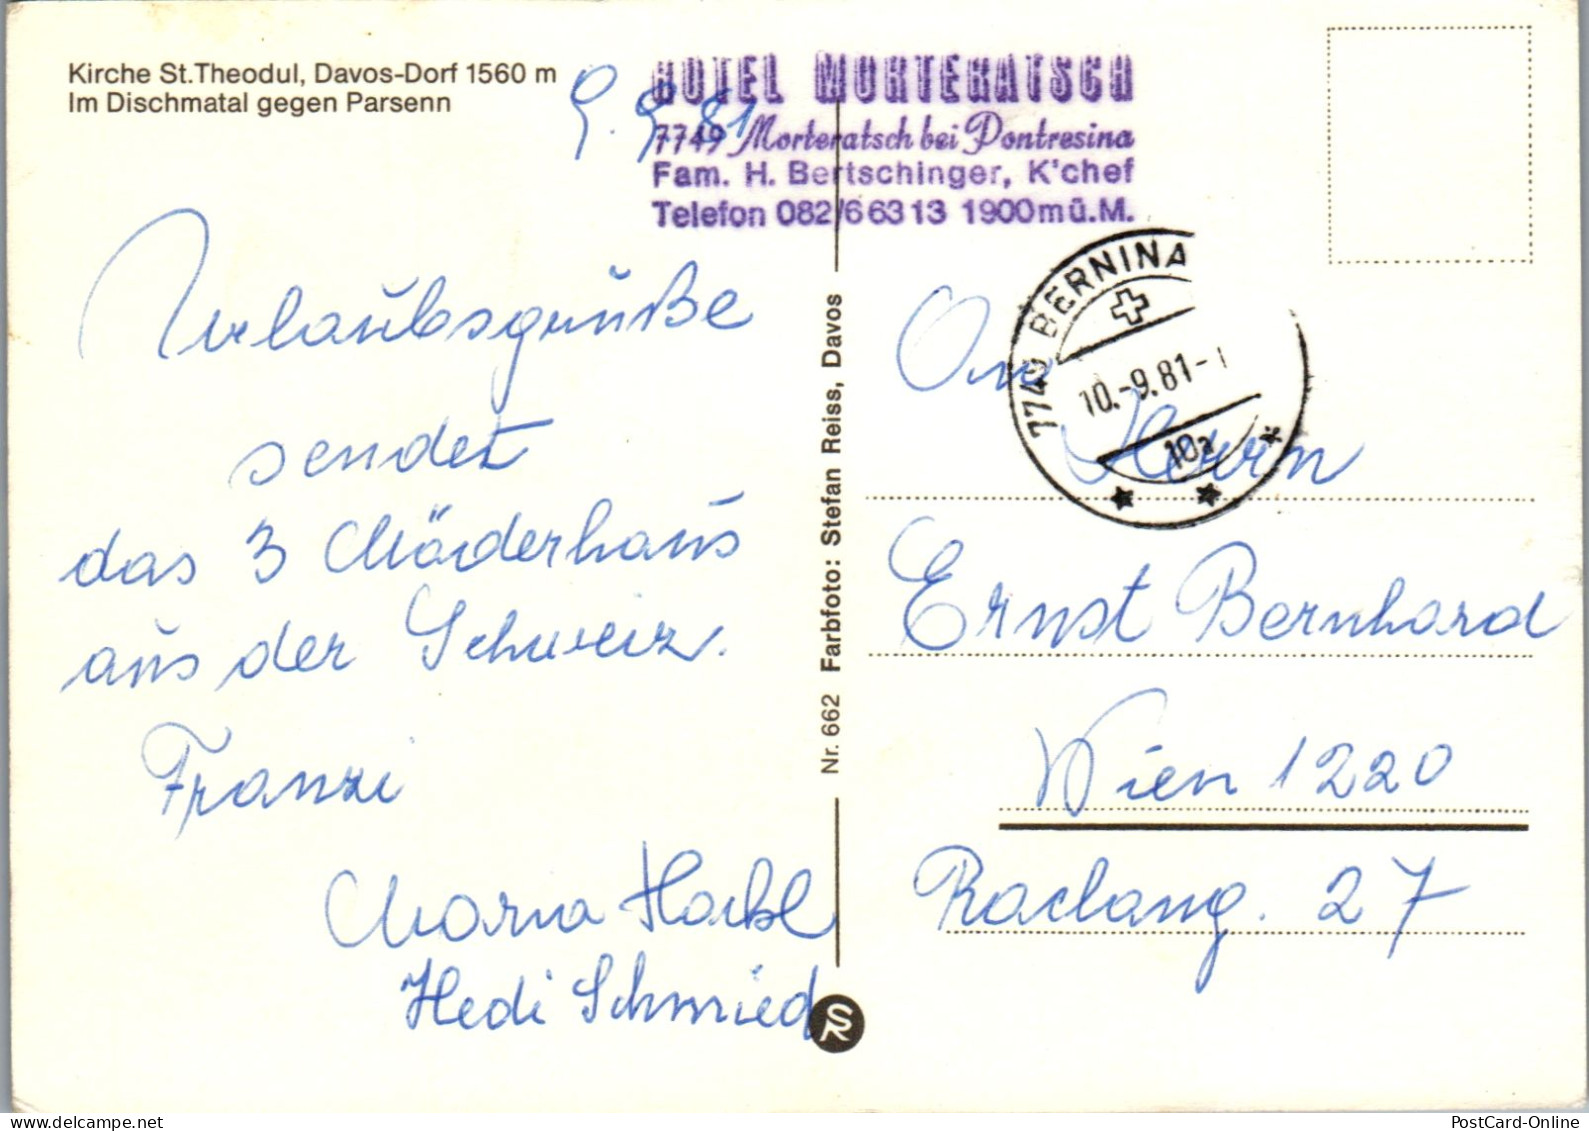 Kirche St.Theodul, Davos-Dorf 1560 m
Im Dischmatal gegen Parsenn
9.9.81
HOTEL MORTERATSCH
7749 Morteratsch bei Pontresina
Fam. H. Bertschinger, K'chef
Telefon 082/66313 1900mü.M.
7749 BERNINA
10.-9.81-1
10a
Urlaubsgrüße
sendet
das 3 Mäderlhaus
aus der Schweiz.
Franzi
Maria Hackl
Hedi Schmied
Nr. 662 Farbfoto: Stefan Reiss, Davos
SR
An
Herrn
Ernst Bernhard
Wien 1220
Raclang. 27
PostCard-Online